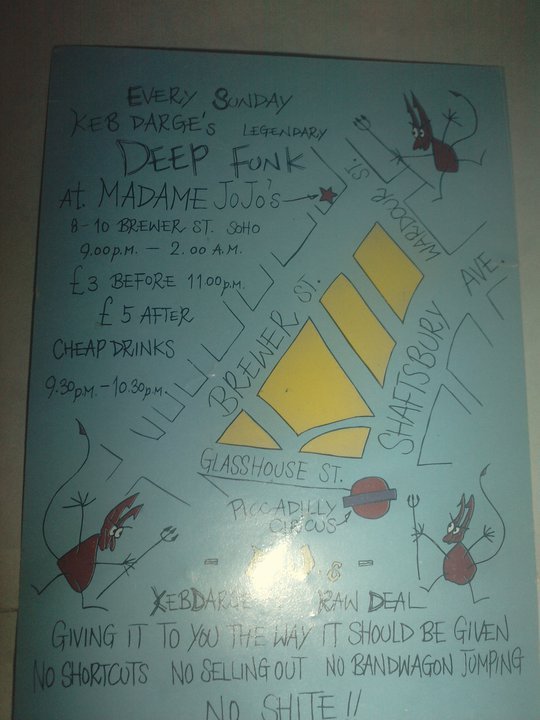 EVERY SUNDAY
KEB DARGE'S LEGENDARY
DEEP FUNK
at MADAME JOJO'S
8-10 BREWER ST. SOHO
9.00P.M. – 2.00 A.M.
£3 BEFORE 11.00P.M.
£5 AFTER
CHEAP DRINKS
9.30P.M.-10.30P.M.
WARDOUR ST.
BREWER ST.
SHAFTSBURY AVE.
GLASSHOUSE ST.
PICCADILLY
CIRCUS
KEB DARGE RAW DEAL
GIVING IT TO YOU THE WAY IT SHOULD BE GIVEN
NO SHORTCUTS NO SELLING OUT NO BANDWAGON JUMPING
NO SHITE !!